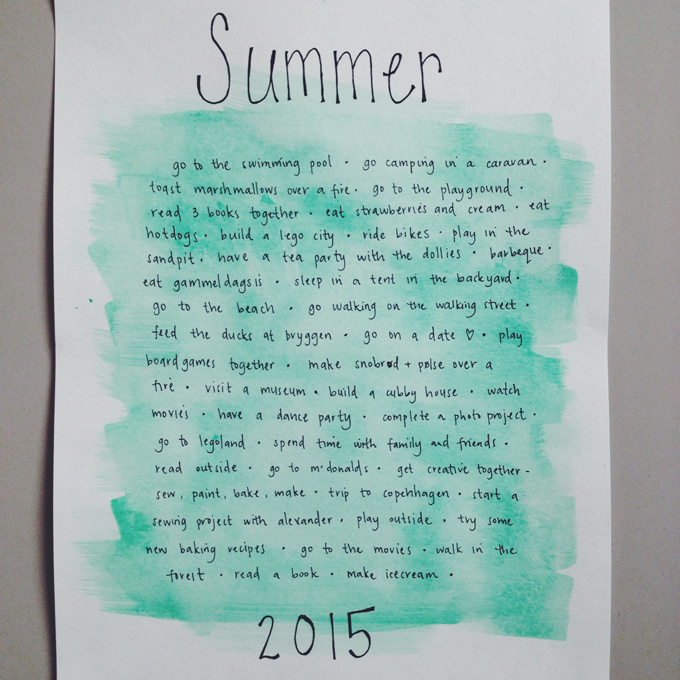 Summer
go to the swimming pool • go camping in a caravan •
toast marshmallows over a fire • go to the playground •
read 3 books together • eat strawberries and cream • eat
hotdogs • build a lego city • ride bikes • play in the
sandpit • have a tea party with the dollies • barbeque •
eat gammeldagsis • sleep in a tent in the backyard •
go to the beach • go walking on the walking street •
feed the ducks at bryggen • go on a date ♡ • play
boardgames together • make snobrød + pølse over a
fire • visit a museum • build a cubby house • watch
movies • have a dance party • complete a photo project •
go to legoland • spend time with family and friends •
read outside • go to mcdonalds • get creative together -
sew, paint, bake, make • trip to copenhagen • start a
sewing project with alexander • play outside • try some
new baking recipes • go to the movies • walk in the
forest • read a book • make icecream •
2015